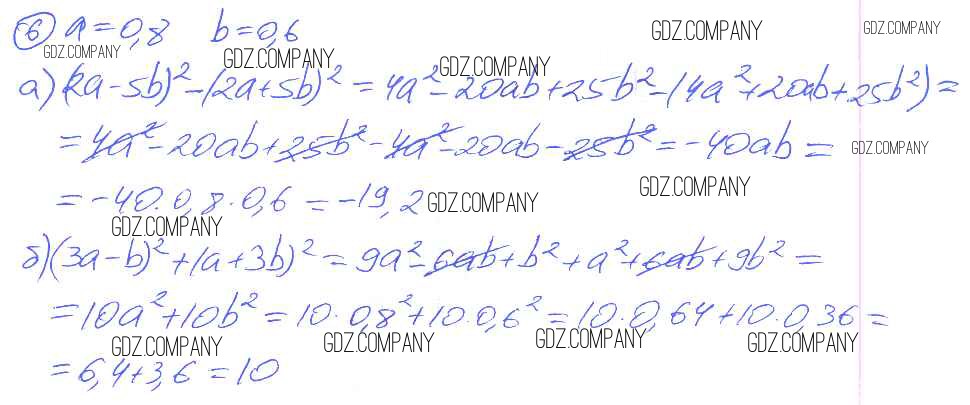 6 a=0,8 b=0,6
GDZ.COMPANY GDZ.COMPANY GDZ.COMPANY GDZ.COMPANY
GDZ.COMPANY
а) (2a-5b)²-(2a+5b)²=4a²-20ab+25b²-(4a²+20ab+25b²)=
=4a²-20ab+25b²-4a²-20ab-25b²=-40ab=
GDZ.COMPANY
=-40·0,8·0,6=-19,2
GDZ.COMPANY GDZ.COMPANY
GDZ.COMPANY
б) (3a-b)²+(a+3b)²=9a²-6ab+b²+a²+6ab+9b²=
=10a²+10b²=10·0,8²+10·0,6²=10·0,64+10·0,36=
GDZ.COMPANY GDZ.COMPANY GDZ.COMPANY GDZ.COMPANY
=6,4+3,6=10